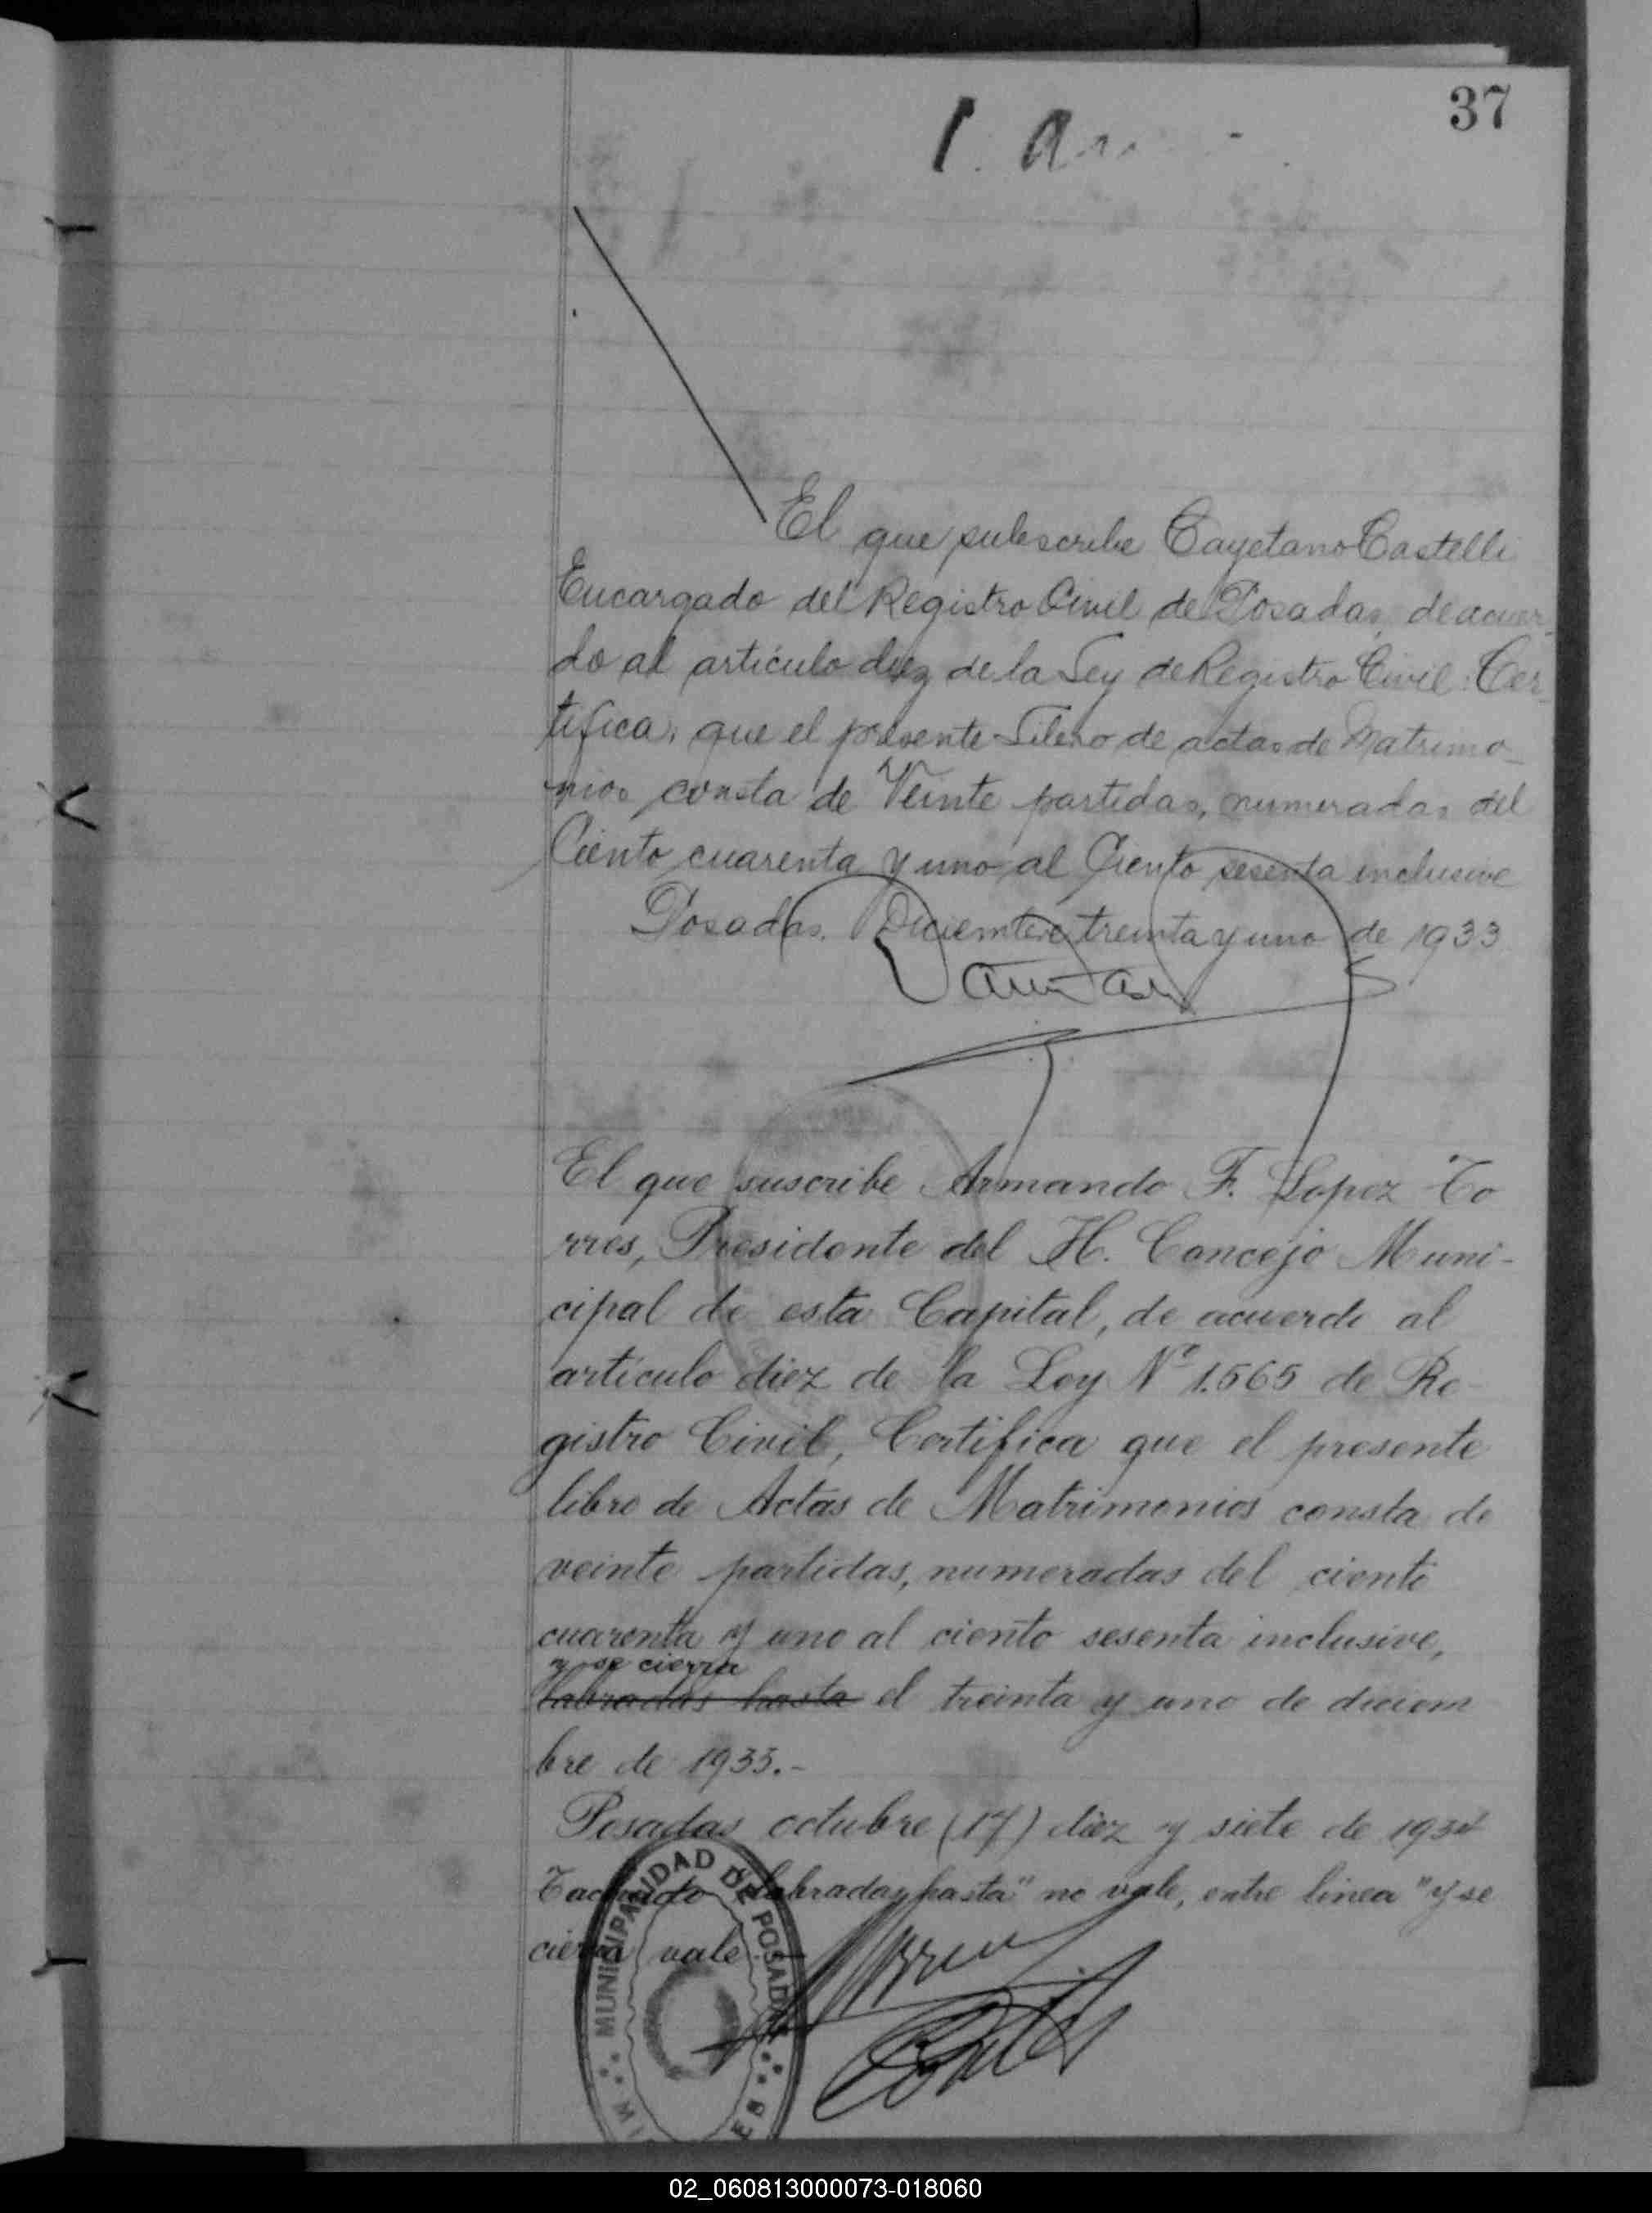 37
El que subscribe Cayetano Castelli
Encargado del Registro Civil de Posadas, de acuer-
do al artículo diez de la Ley de Registro Civil: Cer-
tifica, que el presente Libro de actas de Matrimo-
nios consta de Veinte partidas, numeradas del
Ciento cuarenta y uno al Ciento sesenta inclusive
Posadas. Diciembre treinta y uno de 1933
El que suscribe Armando F. Lopez To
rres, Presidente del H. Concejo Muni-
cipal de esta Capital, de acuerdo al
artículo diez de la Ley Nº 1.565 de Re-
gistro Civil, Certifica que el presente
libro de Actas de Matrimonios consta de
veinte partidas, numeradas del ciento
cuarenta y uno al ciento sesenta inclusive,
y se cierra
labradas hasta el treinta y uno de diciem
bre de 1933.-
Posadas octubre (17) diez y siete de 1934
Tachado "labradas hasta" no vale, entre linea "y se
cierra vale.-
MUNICIPALIDAD DE POSADAS
02_060813000073-018060